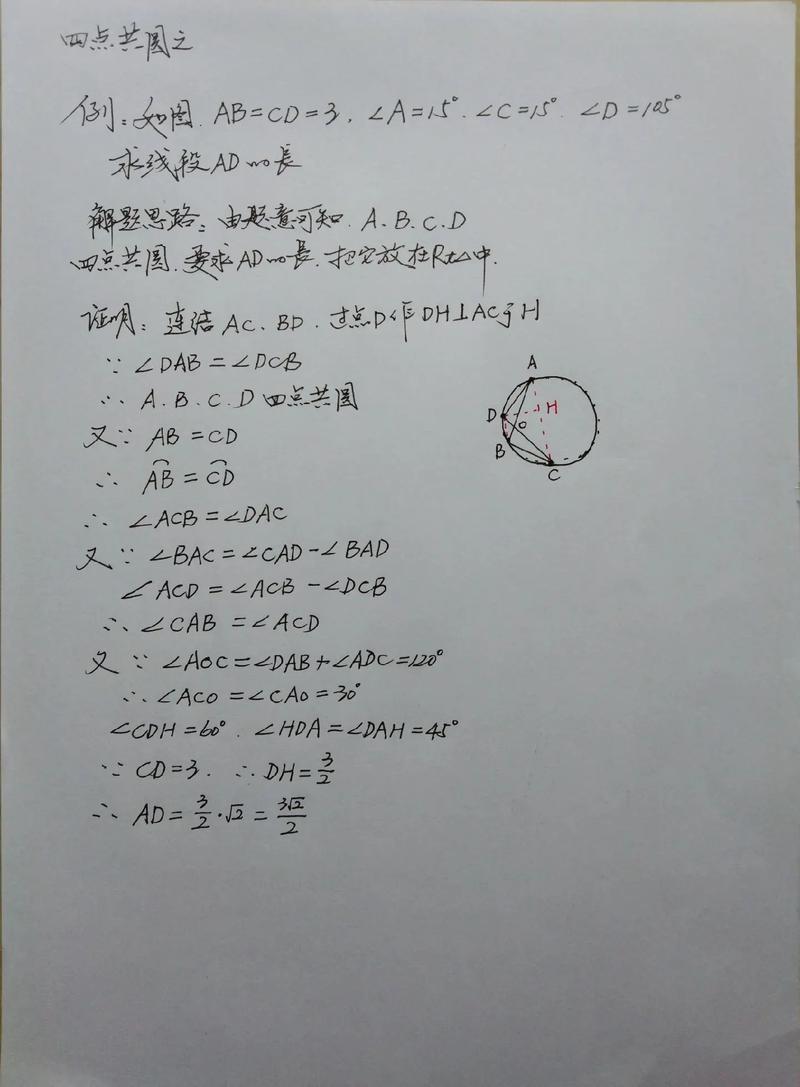 四点共圆之
例：如图. AB=CD=3, ∠A=15°. ∠C=15°. ∠D=105°
求线段AD的長
解题思路：由题意可知. A.B.C.D
四点共圆. 要求AD的長. 把它放在Rt△中.
证明：连结 AC、BD. 过点D作DH⊥AC于H
∵ ∠DAB=∠DCB
∴ A.B.C.D 四点共圆
又∵ AB=CD
∴ A͡B=C͡D
∴ ∠ACB=∠DAC
又∵ ∠BAC=∠CAD-∠BAD
∠ACD=∠ACB-∠DCB
∴ ∠CAB=∠ACD
又∵ ∠AOC=∠DAB+∠ADC=120°
∴ ∠ACO=∠CAO=30°
∠CDH=60°. ∠HDA=∠DAH=45°
∵ CD=3. ∴ DH=3/2
∴ AD=3/2·√2=3√2/2
A
D
H
O
B
C